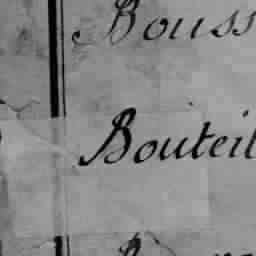 Bouss
Bouteil